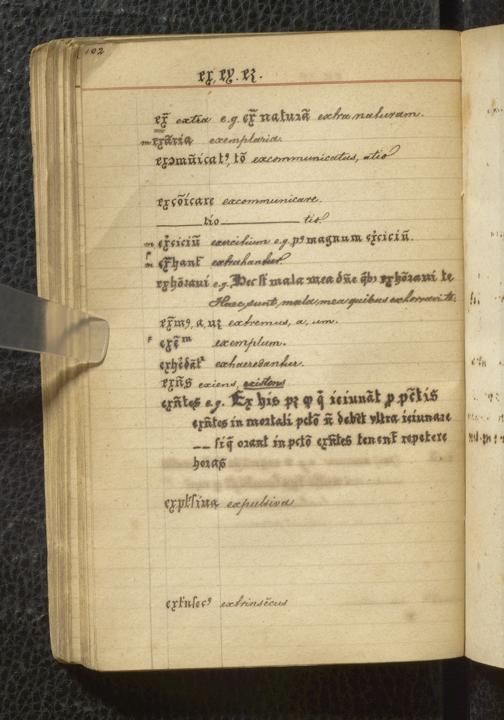 102
ex, ey, ez.
ex̄ extra e.g. ex̄ naturā extra naturam.
exēāria exemplaria.
excōmūicatꝰ, tō excommunicatus, atio
excōicare excommunicare.
tio tis
exciciū exercitium e.g. pꝰ magnum exciciū.
extrahantur.
exhōraui e.g. Hec st̄ mala mea dn̄e qb; exhōraui te
Haec sunt mala mea quibus exhorravi te.
ex̄mꝰ, a, uȝ extremus, a, um.
exēm exemplum.
exhēdāt exhaeredantur.
exn̄s exiens, existens
exn̄tes e.g. Ex his pȝ ꝙ q̄ ieiunāt ꝑ pc̄tis
exn̄tes in mortali pctō n̄ debēt vltra ieiunare
__ siq̄ orant in pctō exn̄tes tenent repetere
horas
explsiua expulsiva
extnsecꝰ extrinsĕcus